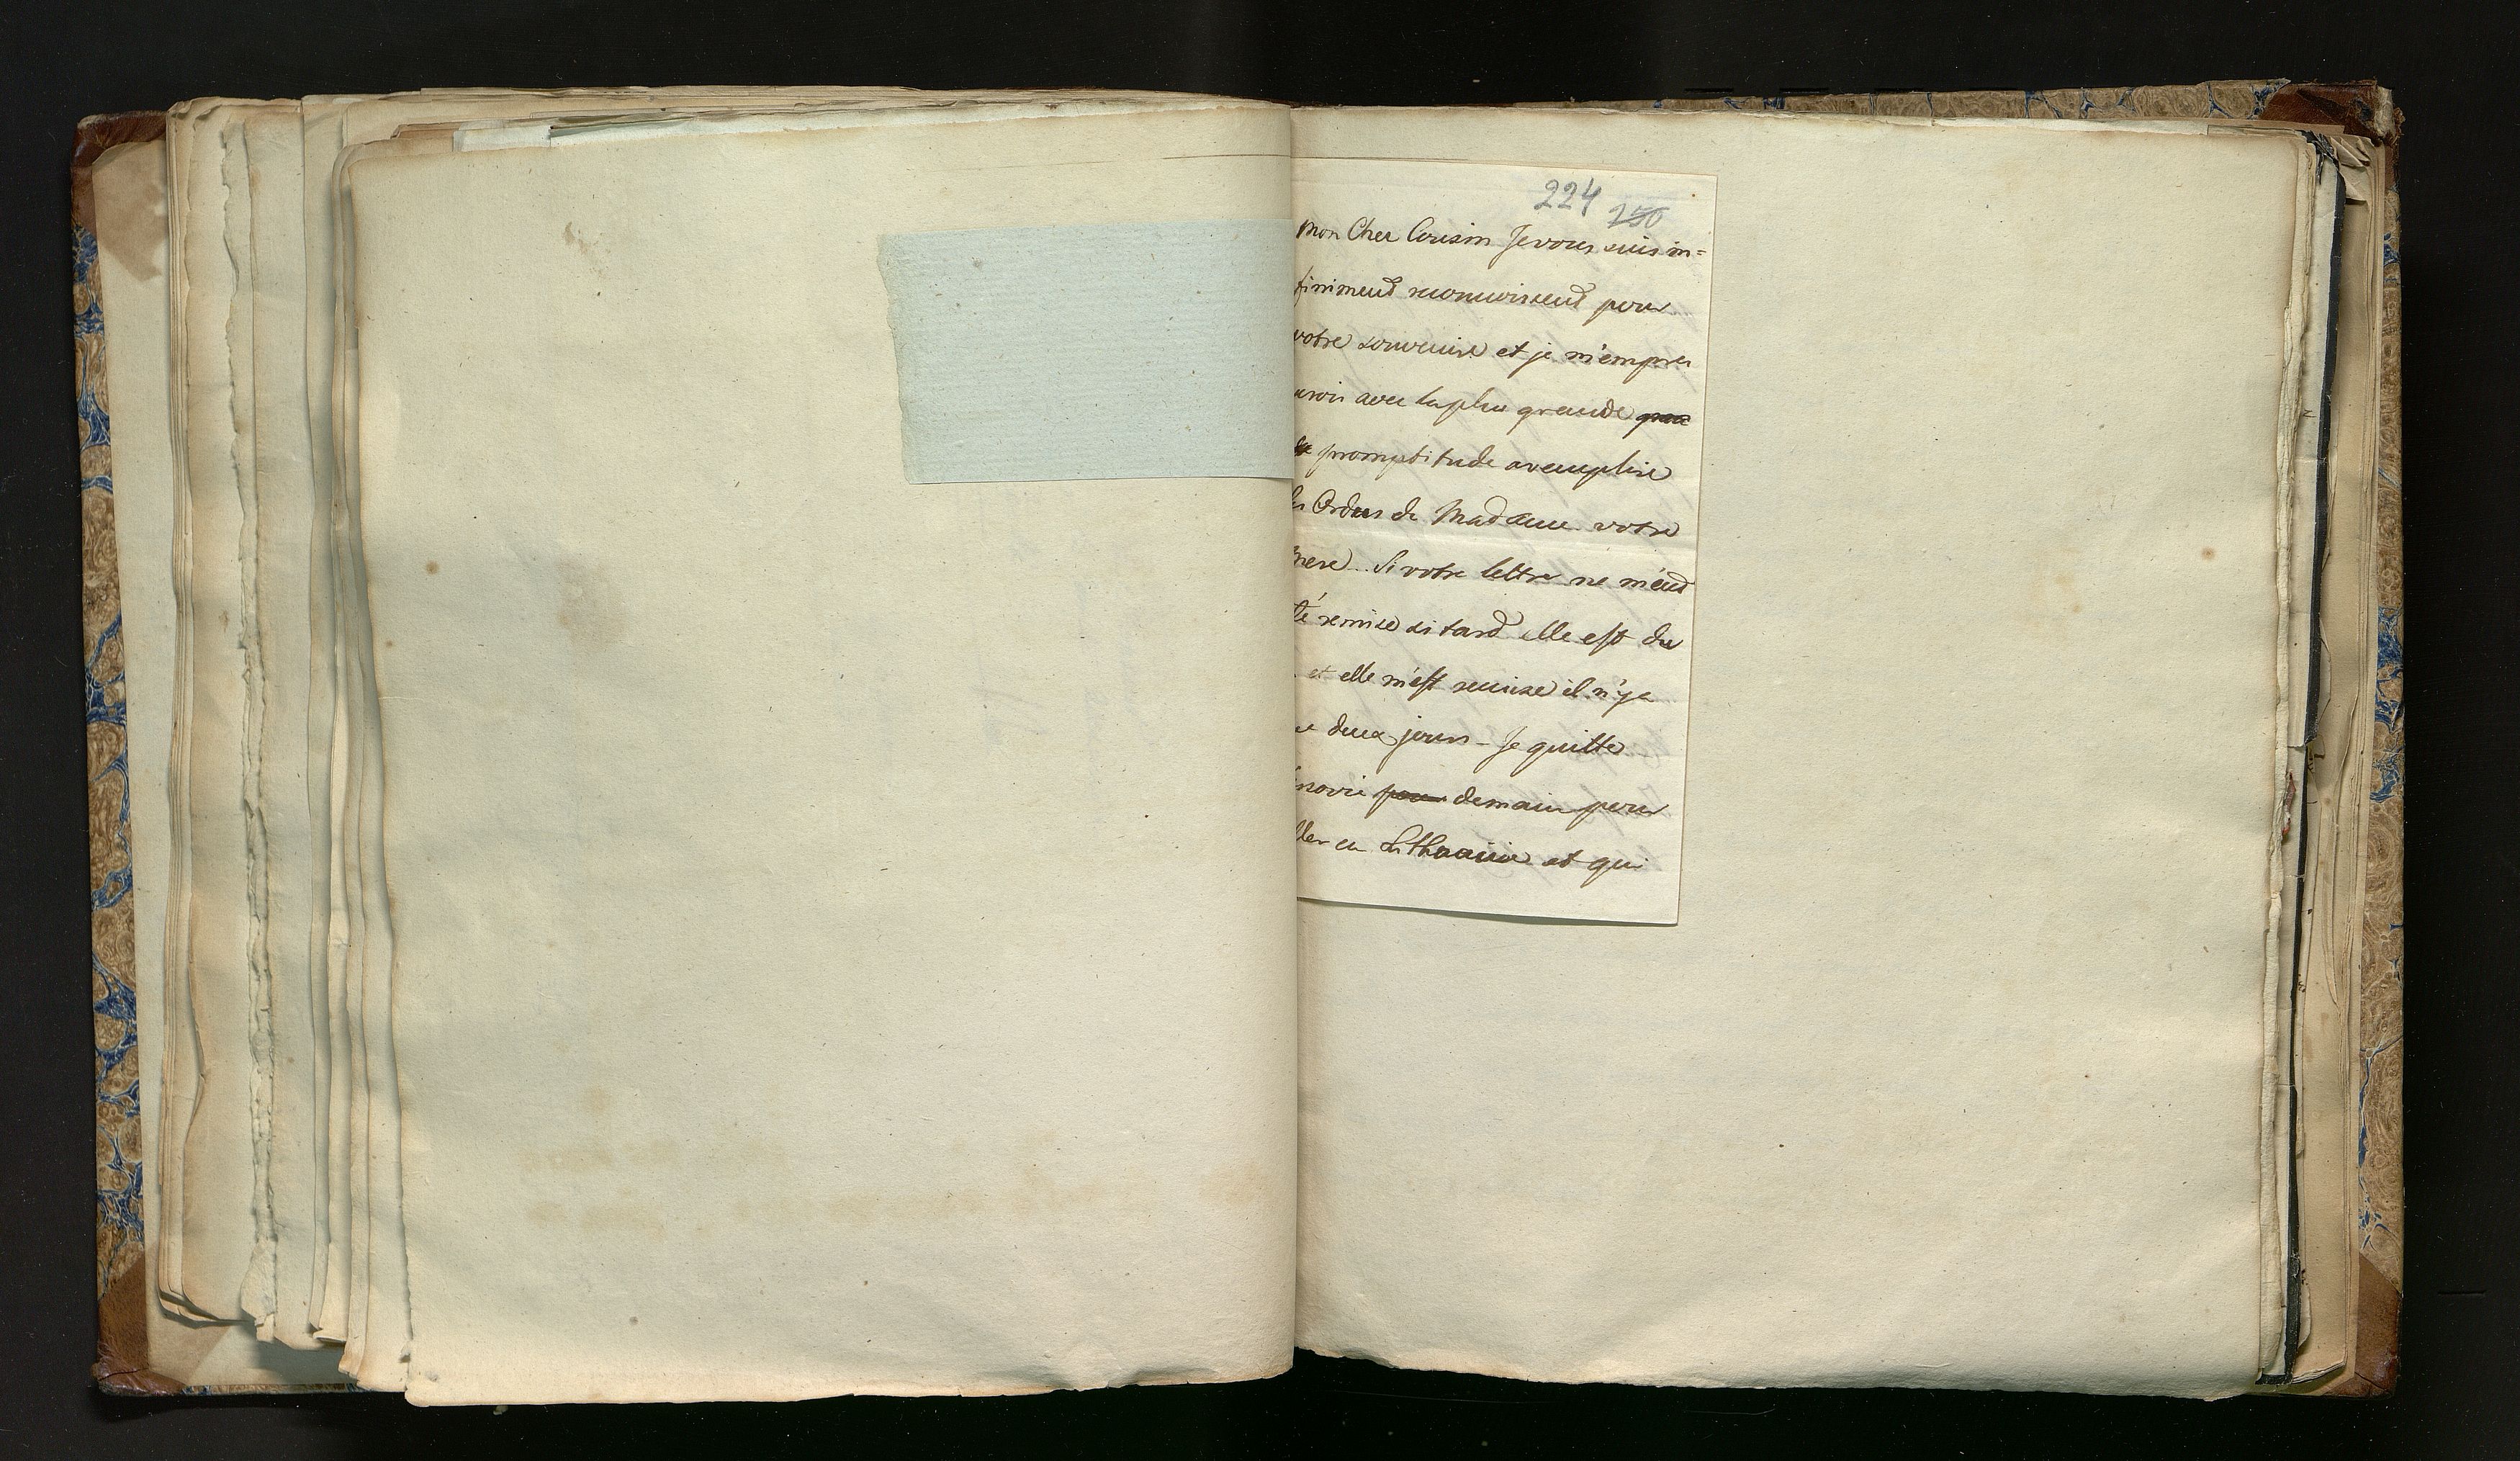 224 250
Mon Cher Cousin Je vous suis in=
finiment reconnoissend pour
votre souvenire et je m'empres
serois avec la plus grande gran
de promptitude a remplire
les Ordres de Madame votre
mere. Si votre lettre ne m'eud
été remise si tard elle est du
et elle m'est remise il n'y a
deux jours - Je quitte
demain pour
en Lithuanie et qui